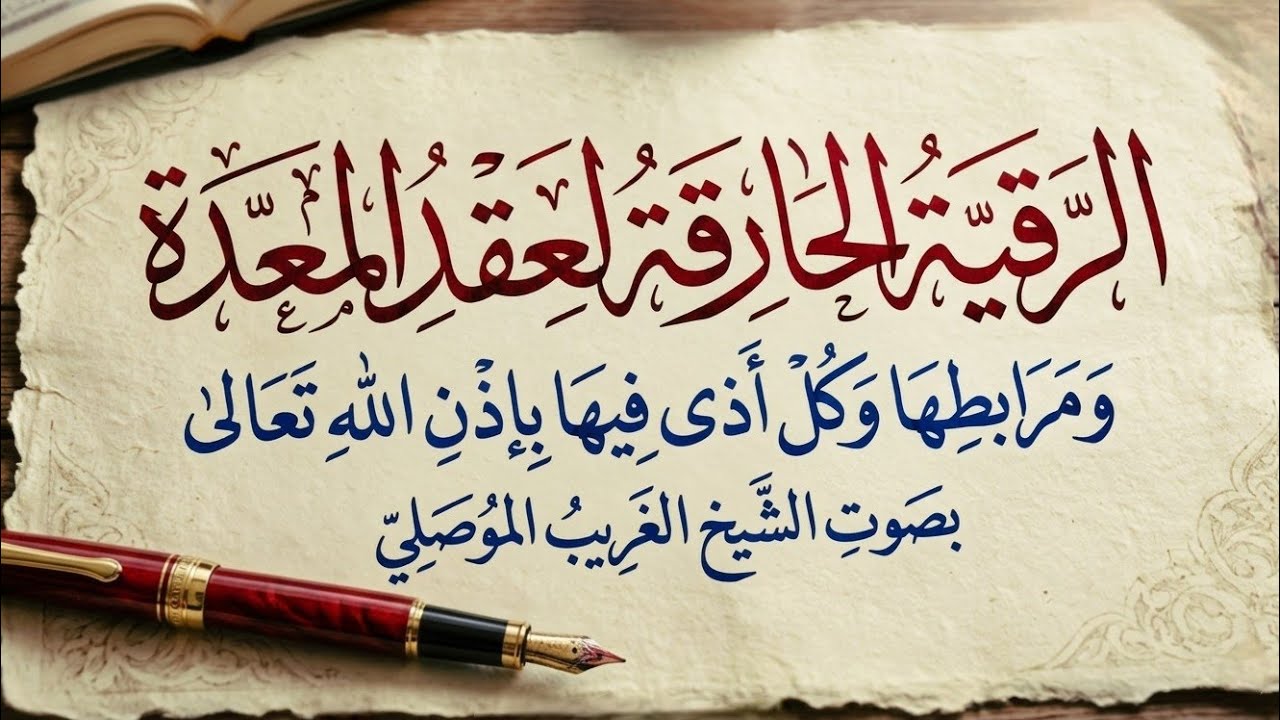 الرَّقيَّةُ الحَارِقَةُ لِعَقْدِ المَعَدَّة
وَمَرَابطِهَا وَكُلْ أَذى فِيهَا بِإذْنِ اللهِ تَعَالىٰ
بصَوتِ الشَّيخ الغَرِيبُ المُوصَلِيّ